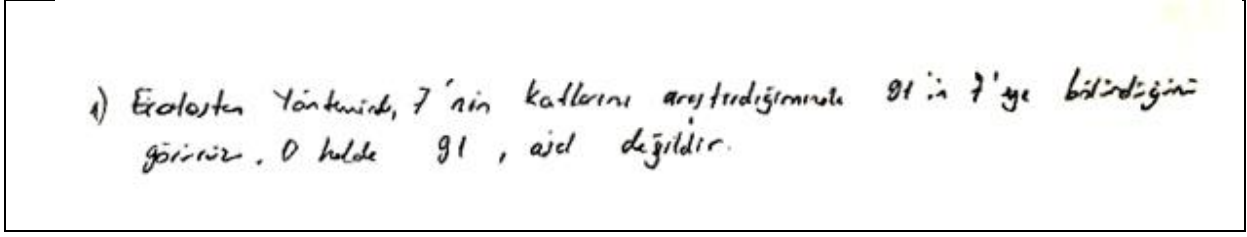 1) Eratosten Yönteminde, 7'nin katlarını araştırdığımızda 91'in 7'ye bölündüğünü
görürüz. O halde 91, asal değildir.